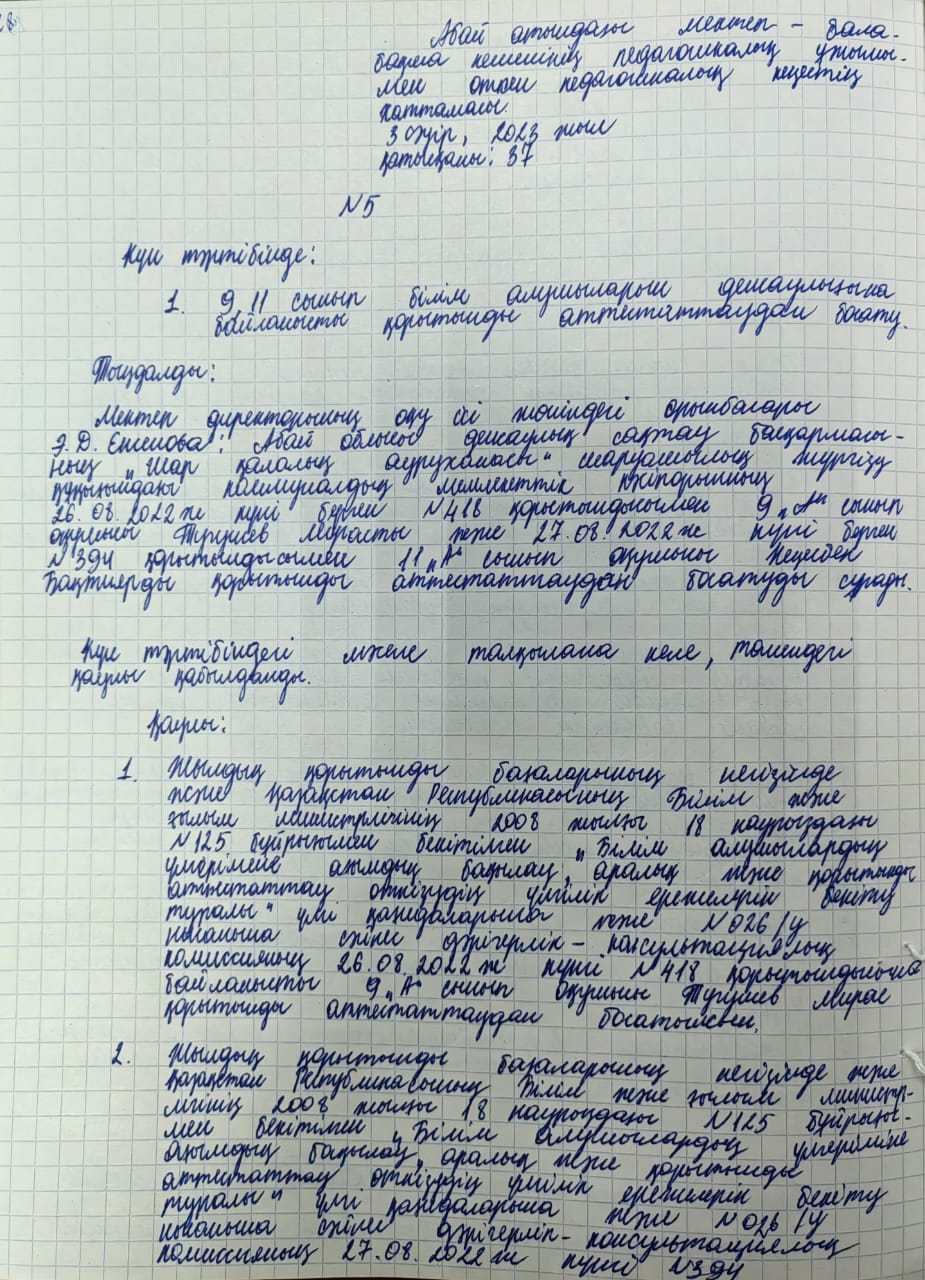 Абай атындағы мектеп – бала-
бақша кешенінің педагогикалық ұжымы-
мен өткен педагогикалық кеңестің
хаттамасы.
3 сәуір, 2023 жыл
қатысқаны: 37
№5
Күн тәртібінде:
1. 9, 11 сынып білім алушыларын денсаулығына
байланысты қорытынды аттестаттаудан босату.
Тыңдалды:
Мектеп директорының оқу ісі жөніндегі орынбасары
Э. Д. Єкенова: Абай облысы денсаулық сақтау басқармасы-
ның „Шар қалалық ауруханасы“ шаруашылық жүргізу
құқығындағы коммуналдық мемлекеттік кәсіпорынның
26.08.2022 ж күні берген №418 қорытындысымен 9 „А“ сынып
оқушысы Мирасты және 27.08.2022 ж күні берген
№394 қорытындысымен 11 „А“ сынып оқушысы
Бақтиярды қорытынды аттестаттаудан босатуды сұрады.
Күн тәртібіндегі мәселе талқылана келе, төмендегі
қаулы қабылданды.
Қаулы:
1. Жылдық қорытынды бағаларының негізінде
және Қазақстан Республикасының Білім және
ғылым министрлігінің 2008 жылғы 18 наурыздағы
№125 бұйрығымен бекітілген „Білім алушылардың
үлгеріміне ағымдық бақылау, аралық және қорытынды
аттестаттау өткізудің үлгілік ережелерін бекіту
туралы“ үлгі қағидаларына және №026/у
нысанына сәйкес дәрігерлік – консультациялық
комиссияның 26.08.2022 ж күнгі №418 қорытындысына
байланысты 9 „А“ сынып оқушысы Мирас
қорытынды аттестаттаудан босатылсын.
2. Жылдық қорытынды бағаларының негізінде және
Қазақстан Республикасының Білім және ғылым министр-
лігінің 2008 жылғы 18 наурыздағы №125 бұйрығы-
мен бекітілген „Білім алушылардың үлгеріміне
ағымдық бақылау, аралық және қорытынды
аттестаттау өткізудің үлгілік ережелерін бекіту
туралы“ үлгі қағидаларына және №026/у
нысанына сәйкес дәрігерлік – консультациялық
комиссияның 27.08.2022 ж күнгі №394